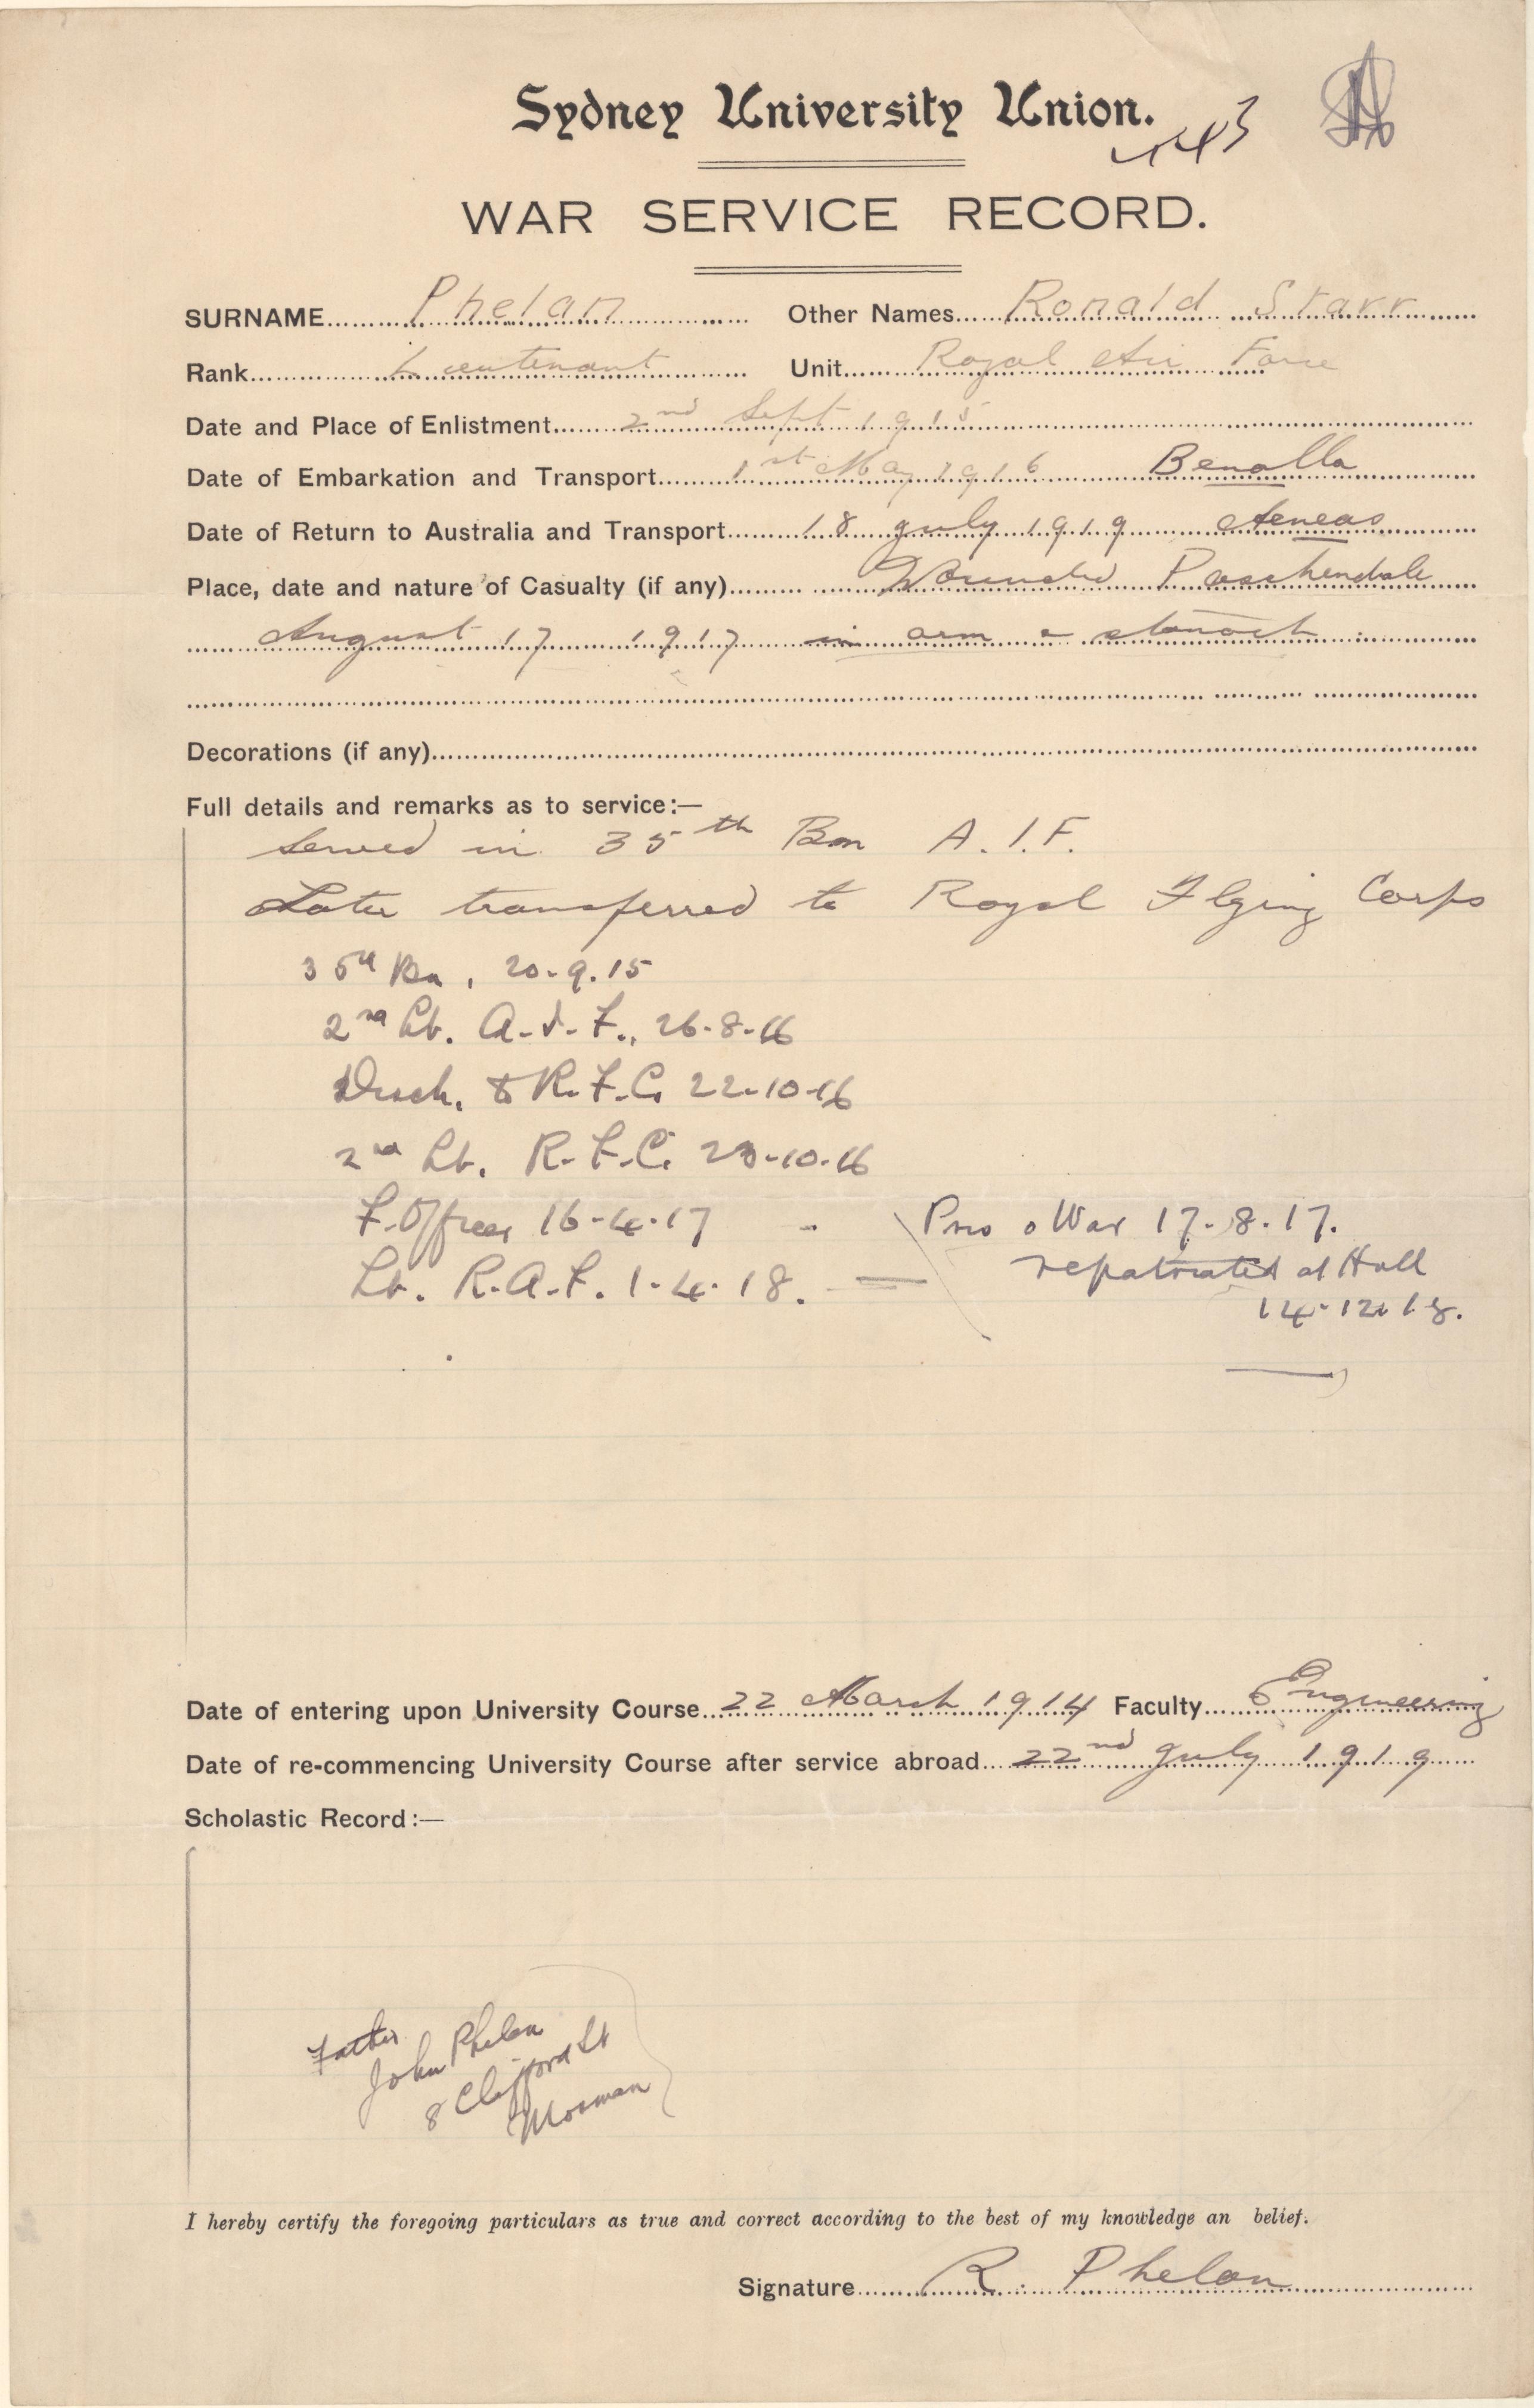 Sydney University Union.
WAR SERVICE RECORD.
SURNAME Phelan Other Names Ronald Starr
Rank Lieutenant Unit Royal Air Force
Date and Place of Enlistment 2nd Sept 1915
Date of Embarkation and Transport 1st May 1916 Benalla
Date of Return to Australia and Transport 18 July 1919 Aeneas
Place, date and nature of Casualty (if any) Wounded Paschendale
August 17 1917 in arm
Decorations (if any)
Full details and remarks as to service:—
Served in 35th Bon A.I.F.
Later transferred to Royal Flying Corps
35th Bn, 20-9.15
2nd Lt. A.I.F., 26-8-16
Disch. to R.F.C. 22-10-16
2nd Lt. R.F.C. 23-10-16
F. Officer 16-4-17 - Pris o War 17.8.17.
Lt. R.A.F. 1-4-18. — repatriated at Hull
14.12.18.
Date of entering upon University Course 22 March 1914 Faculty Engineering
Date of re-commencing University Course after service abroad 22nd July 1919
Scholastic Record:—
Father
John Phelan
8 Clifford St
Mosman
I hereby certify the foregoing particulars as true and correct according to the best of my knowledge an belief.
Signature R. Phelan